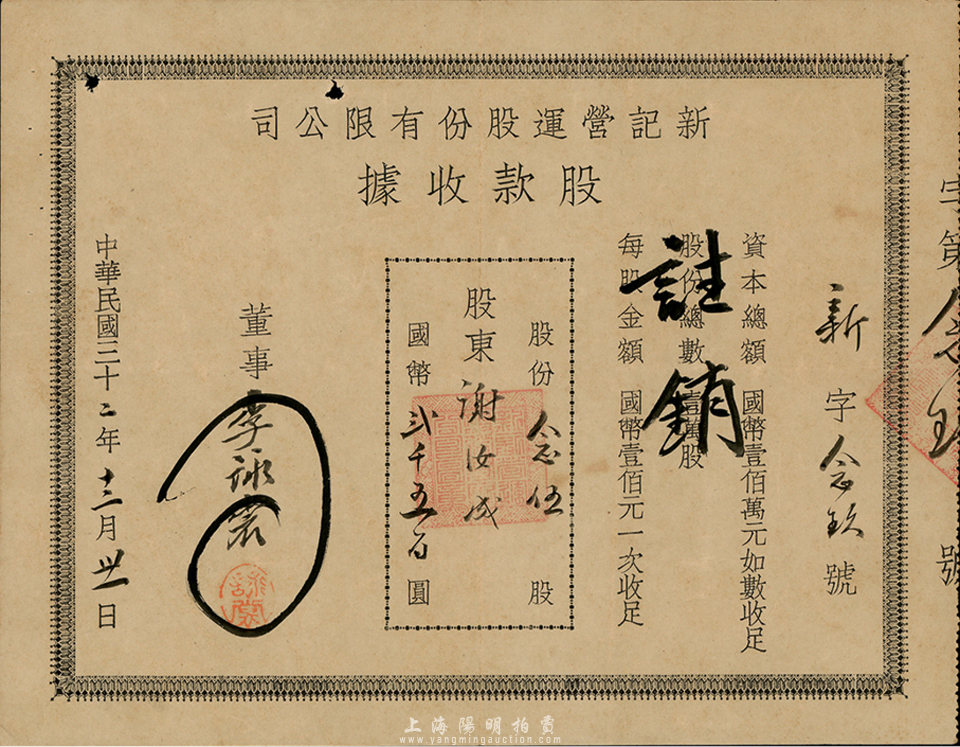 新記營運股份有限公司
股款收據
字第念玖號
新字念玖號
資本總額 國幣壹佰萬元如數收足
股份總數 壹萬股
每股金額 國幣壹佰元一次收足
註銷
股份念伍股
股東謝汝成
國幣弍千五百圓
董事李詠裳
中華民國三十二年十二月卅一日
上海陽明拍賣
www.yangmingauction.com